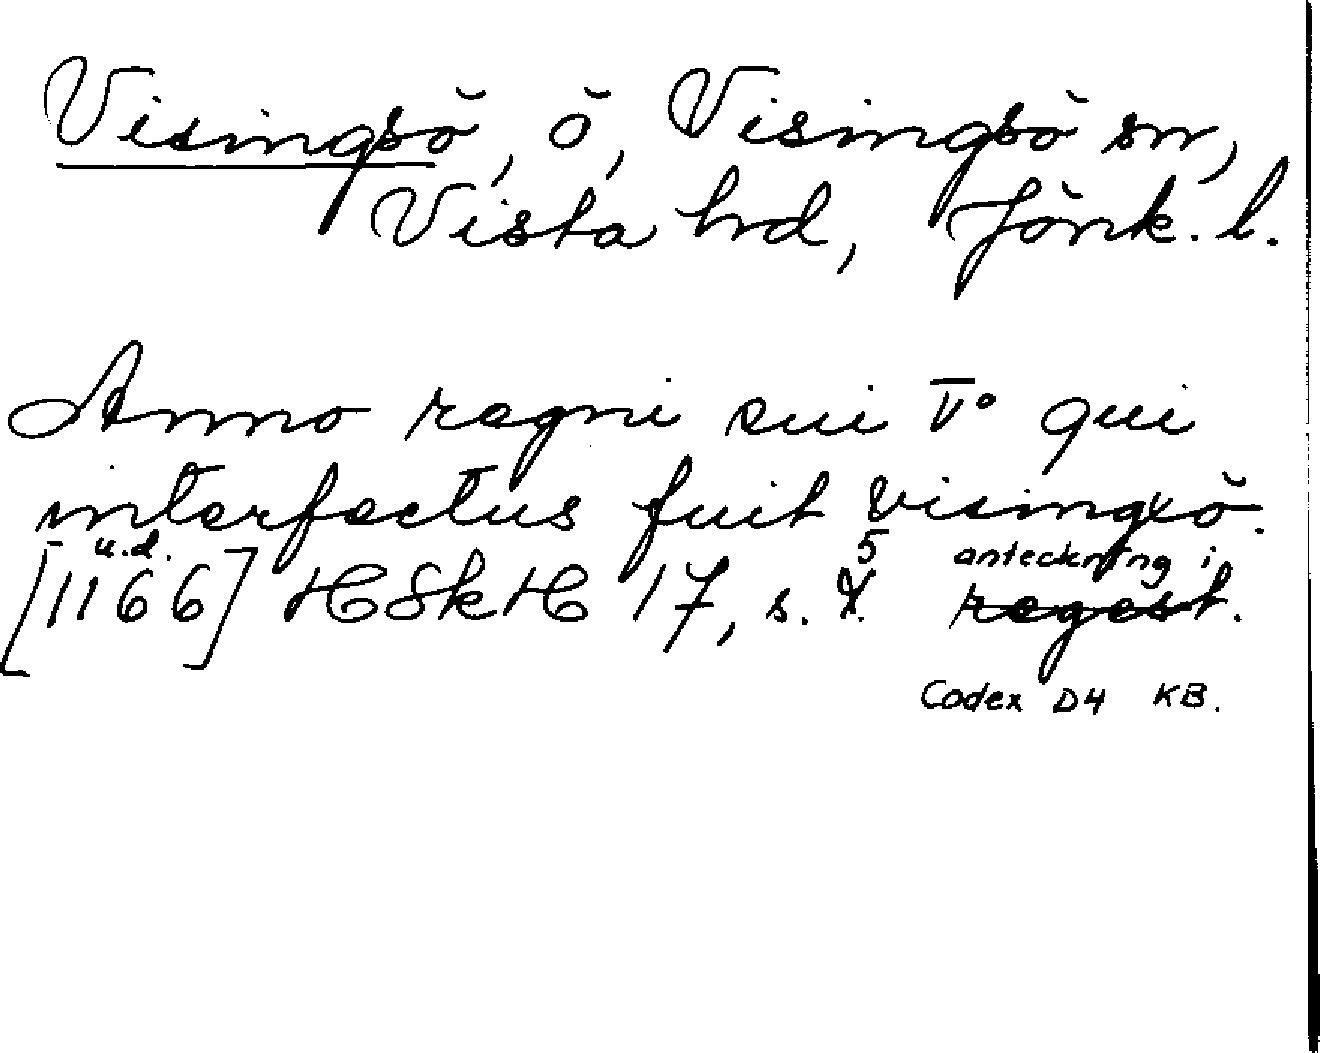 Visingsö, ö, Visingsö sn,
Vista hd, Jönk. l.
Anno regni sui V° qui
interfectus fuit visingxö.
u.d. 5 anteckning i
[1166] HSkH 17, s. regest.
Codex D4 KB.